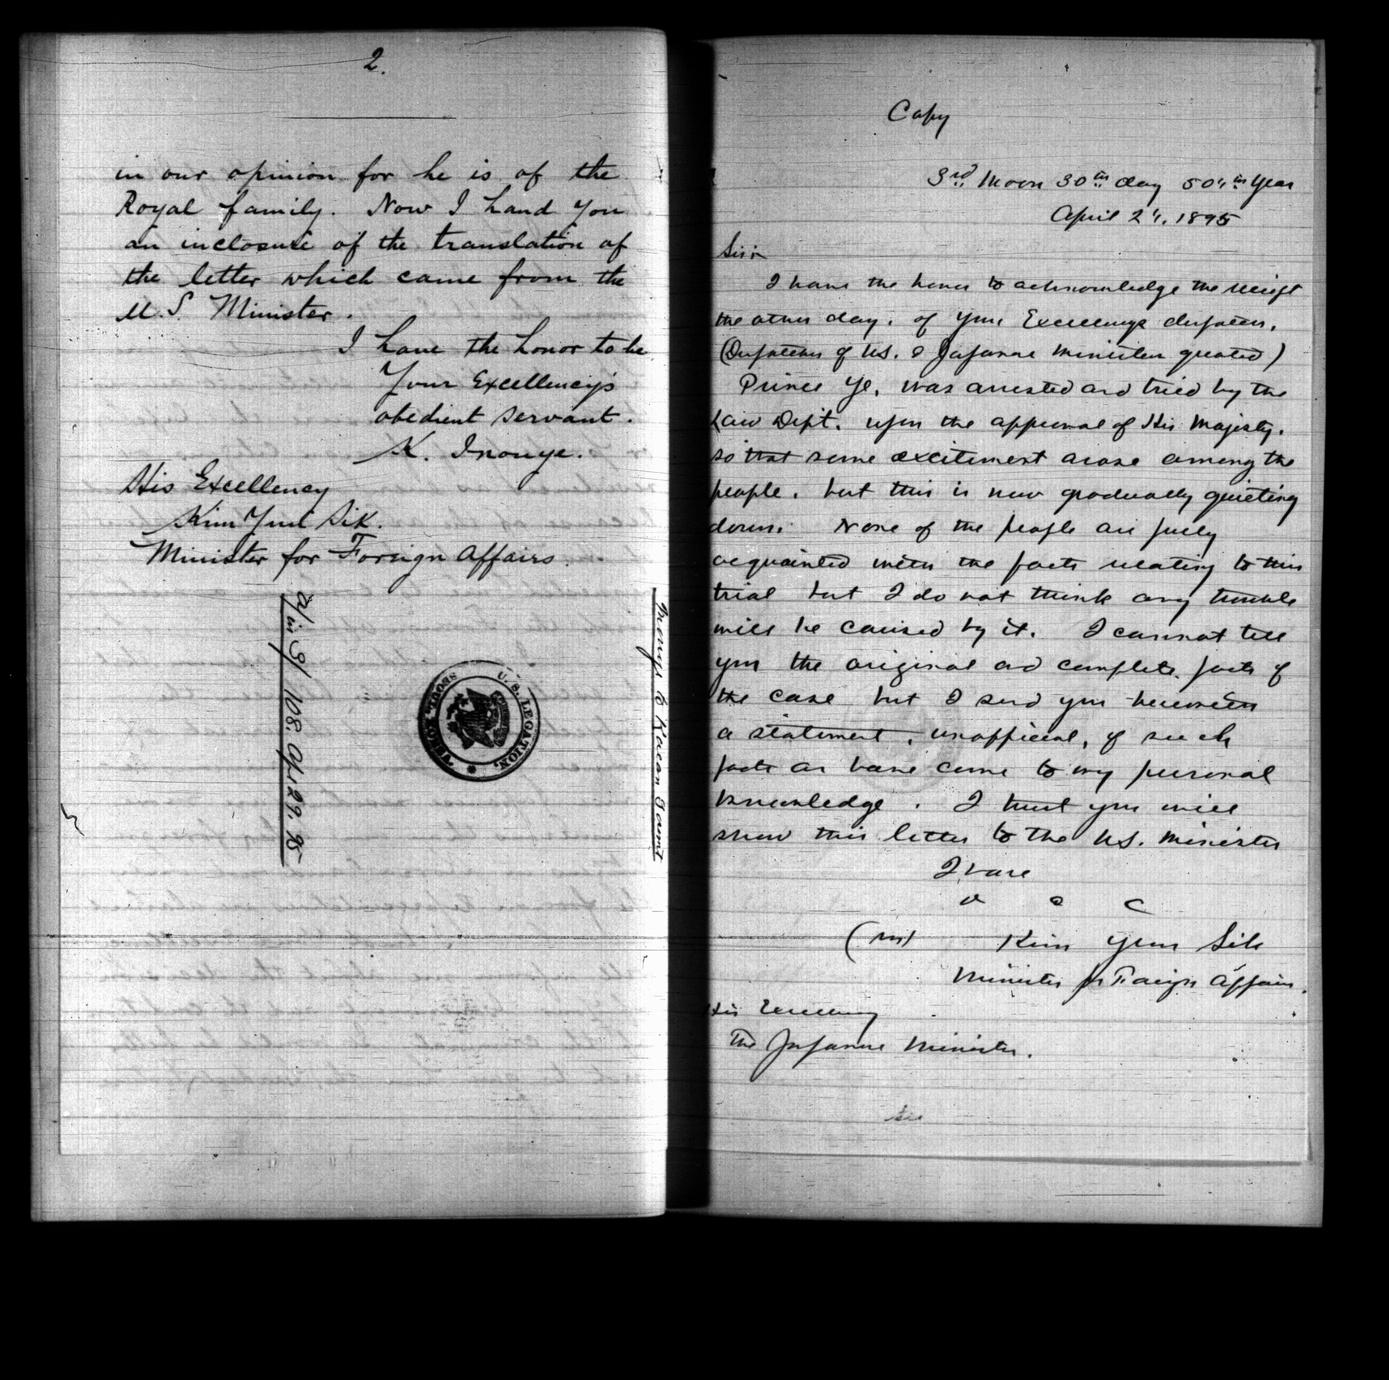 2.
in our opinion for he is of the
Royal family. Now I hand you
an inclosure of the translation of
the letter which came from the
U.S. Minister.
I have the honor to be
Your Excellency's
obedient servant.
K. Inouye.
His Excellency
Kim Yun Sik.
Minister for Foreign Affairs.
108. Apl 29. 95
to Korean
U.S. LEGATION,
SEOUL, KOREA
Copy
3rd Moon 30th day 504th Year
April 24, 1895
Sir:
I have the honor to acknowledge the receipt
the other day, of Your Excellency's despatch.
(Despatches of U.S. & Japanese Minister quoted)
Prince Ye, was arrested and tried by the
Law Dept. upon the approval of His Majesty.
so that some excitement arose among the
people, but this is now gradually quieting
down. None of the people are fully
acquainted with the facts relating to this
trial but I do not think any trouble
will be caused by it. I cannot tell
you the original and complete facts of
the case but I send you herewith
a statement, unofficial, of such
facts as have come to my personal
knowledge. I trust you will
show this letter to the U.S. Minister
I have
&c
Kim Yun Sik
Minister for Foreign Affairs.
His Excellency
The Japanese Minister.